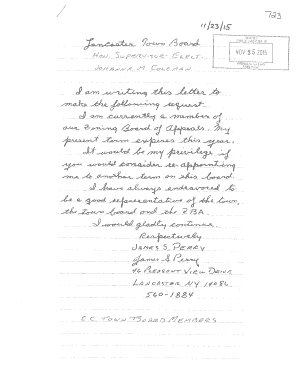 723
11/23/15
Lancaster Town Board
Hon. Supervisor Elect
Johanna M. Coleman
NOV 25 2015
I am writing this letter to
make the following request.
I am currently a member of
our Zoning Board of Appeals. My
present term expires this year.
It would be my privilege if
you would consider re-appointing
me to another term on this board.
I have always endeavored to
be a good representative of the town,
the town board and the ZBA.
I would gladly continue.
Respectively
James S. Perry
James S Perry
46 Pleasant View Drive
Lancaster NY 14086
560-1884
CC Town Board Members